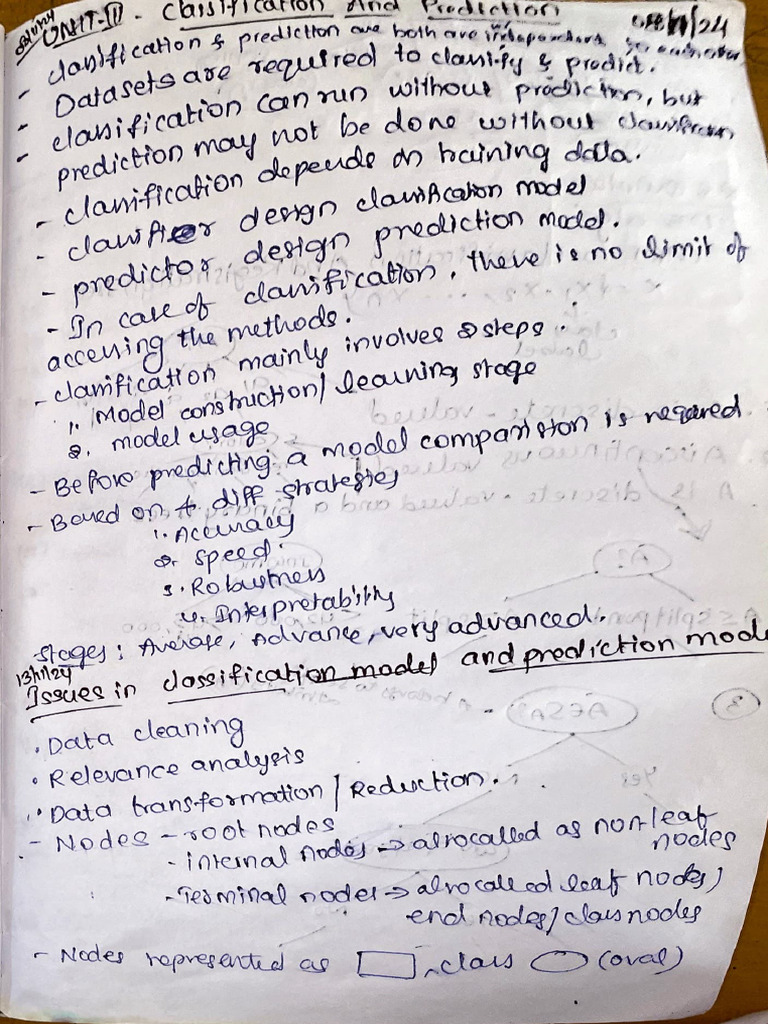 UNIT-III - Classification And Prediction
- classification & prediction are both are independent
- Datasets are required to classify & predict.
- classification can run without prediction, but
prediction may not be done without classification
- classification depends on training data.
- classifier design classification model
- predictor design prediction model.
- In case of classification, there is no limit of
accessing the methods.
- classification mainly involves 2 steps.
1. Model construction/ learning stage
2. model usage
- Before predicting a model comparision is required
- Based on 4 diff strategies
1. Accuracy
2. Speed.
3. Robustness
4. Interpretability
Stages: Average, Advance, very advanced.
13/11/24
Issues in classification model and prediction mode
. Data cleaning
. Relevance analysis
. Data transformation / Reduction.
- Nodes - root nodes
- internal nodes → also called as non-leaf
nodes
- Terminal nodes → also called leaf nodes/
end nodes/ class nodes
- Nodes represented as , class (oval)